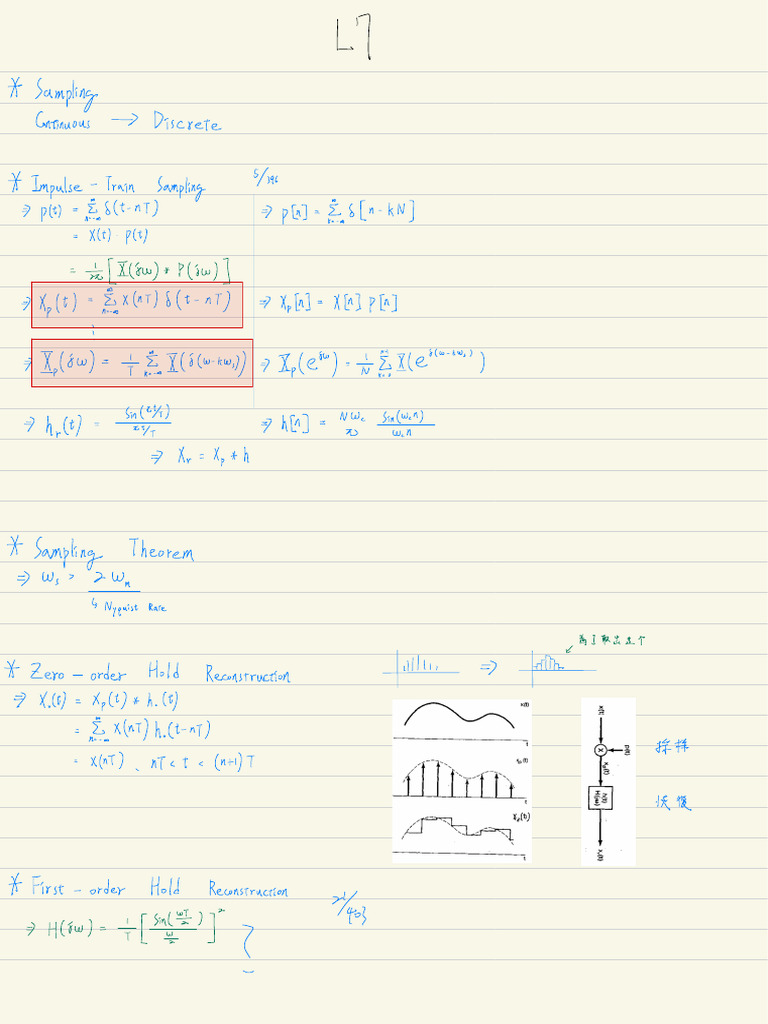 L7
* Sampling
Continuous → Discrete
* Impulse-Train Sampling 5/396
⇒ p(t) = Σ_{n=-∞}^{∞} δ(t-nT) ⇒ p[n] = Σ_{k=-∞}^{∞} δ[n-kN]
= X(t) · p(t)
= 1/2π [X(jω) * P(jω)]
⇒ Xp(t) = Σ_{n=-∞}^{∞} X(nT) δ(t-nT) ⇒ Xp[n] = X[n] p[n]
⇒ Xp(jω) = 1/T Σ_{k=-∞}^{∞} X(j(ω-kωs)) ⇒ Xp(e^{jω}) = 1/N Σ X(e^{j(ω-kωs)})
⇒ hr(t) = sin(πt/T) / (πt/T) ⇒ h[n] = Nωc/π sin(ωcn)/ωcn
⇒ Xr = Xp * h
* Sampling Theorem
⇒ ωs > 2ωm
↳ Nyquist Rate
為了取出這個
* Zero-order Hold Reconstruction ⇒
⇒ X₀(t) = Xp(t) * h₀(t)
= Σ_{n=-∞}^{∞} X(nT) h₀(t-nT)
= X(nT) 、 nT < t < (n+1)T
x(t)
t
t
Xp(t)
t
x(t)
p(t)
×
xp(t)
h(t)
H(jω)
採樣
恢復
* First-order Hold Reconstruction
⇒ H(jω) = 1/T [sin(ωT/2) / (ω/2)]² 21/403